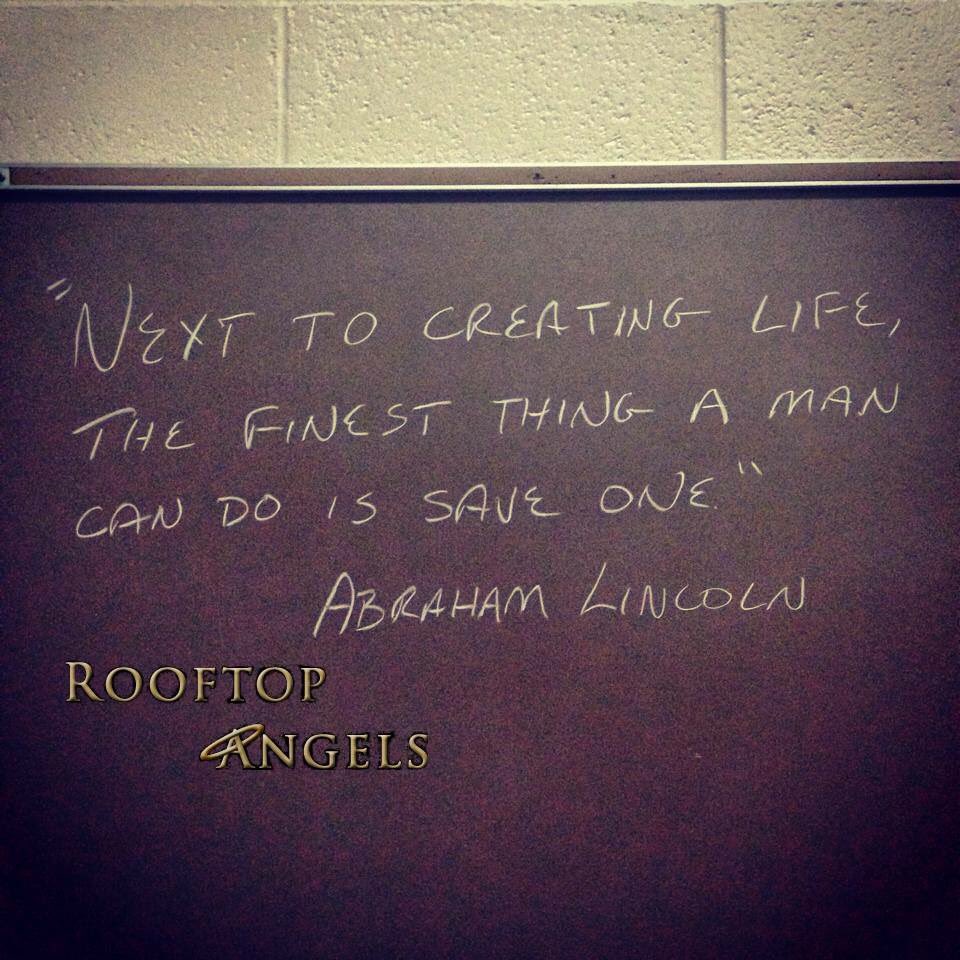 "NEXT TO CREATING LIFE,
THE FINEST THING A MAN
CAN DO IS SAVE ONE."
ABRAHAM LINCOLN
ROOFTOP
ANGELS